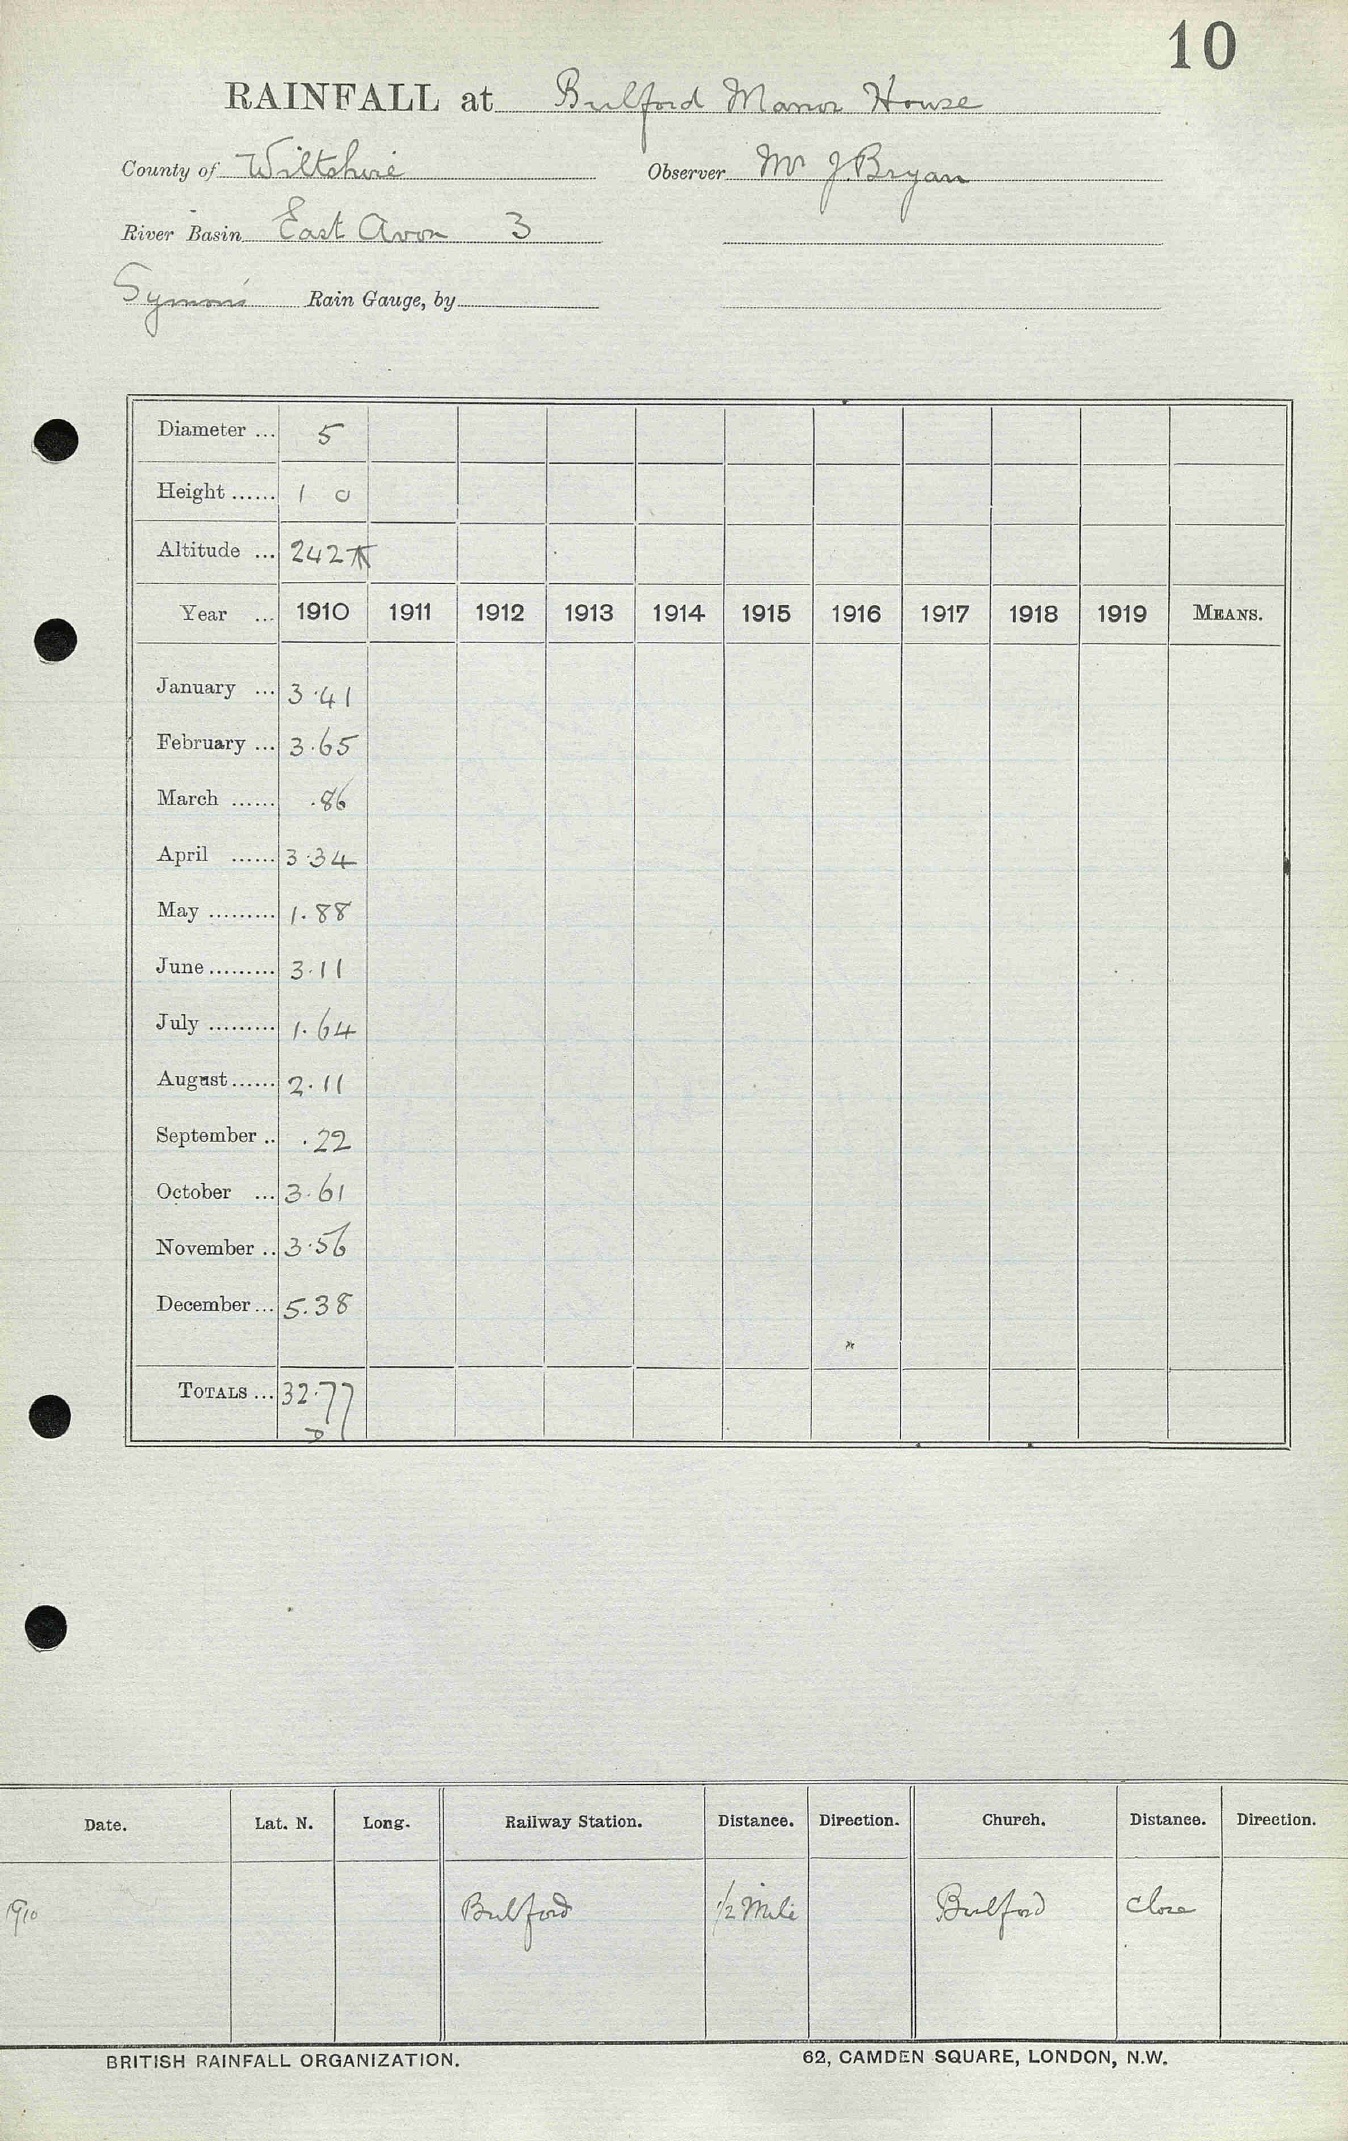 10
RAINFALL at Bulford Manor House
County of Wiltshire Observer Mr J. Bryan
River Basin East Avon 3
Symons Rain Gauge, by
Diameter ... 5
Height ...... 1 0
Altitude ... 242
Year ... 1910 1911 1912 1913 1914 1915 1916 1917 1918 1919 MEANS.
January ... 3.41
February ... 3.65
March ...... .86
April ...... 3.34
May ......... 1.88
June ......... 3.11
July ......... 1.64
August ...... 2.11
September .. .22
October ... 3.61
November .. 3.56
December ... 5.38
TOTALS ... 32.77
Date. Lat. N. Long. Railway Station. Distance. Direction. Church. Distance. Direction.
1910 Bulford 1/2 Mile Bulford Close
BRITISH RAINFALL ORGANIZATION. 62, CAMDEN SQUARE, LONDON, N.W.